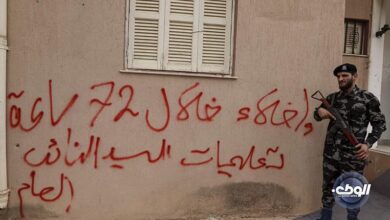 إخلاء خلال 72 ساعة
تعليمات السيد النائب
العام
الوطن